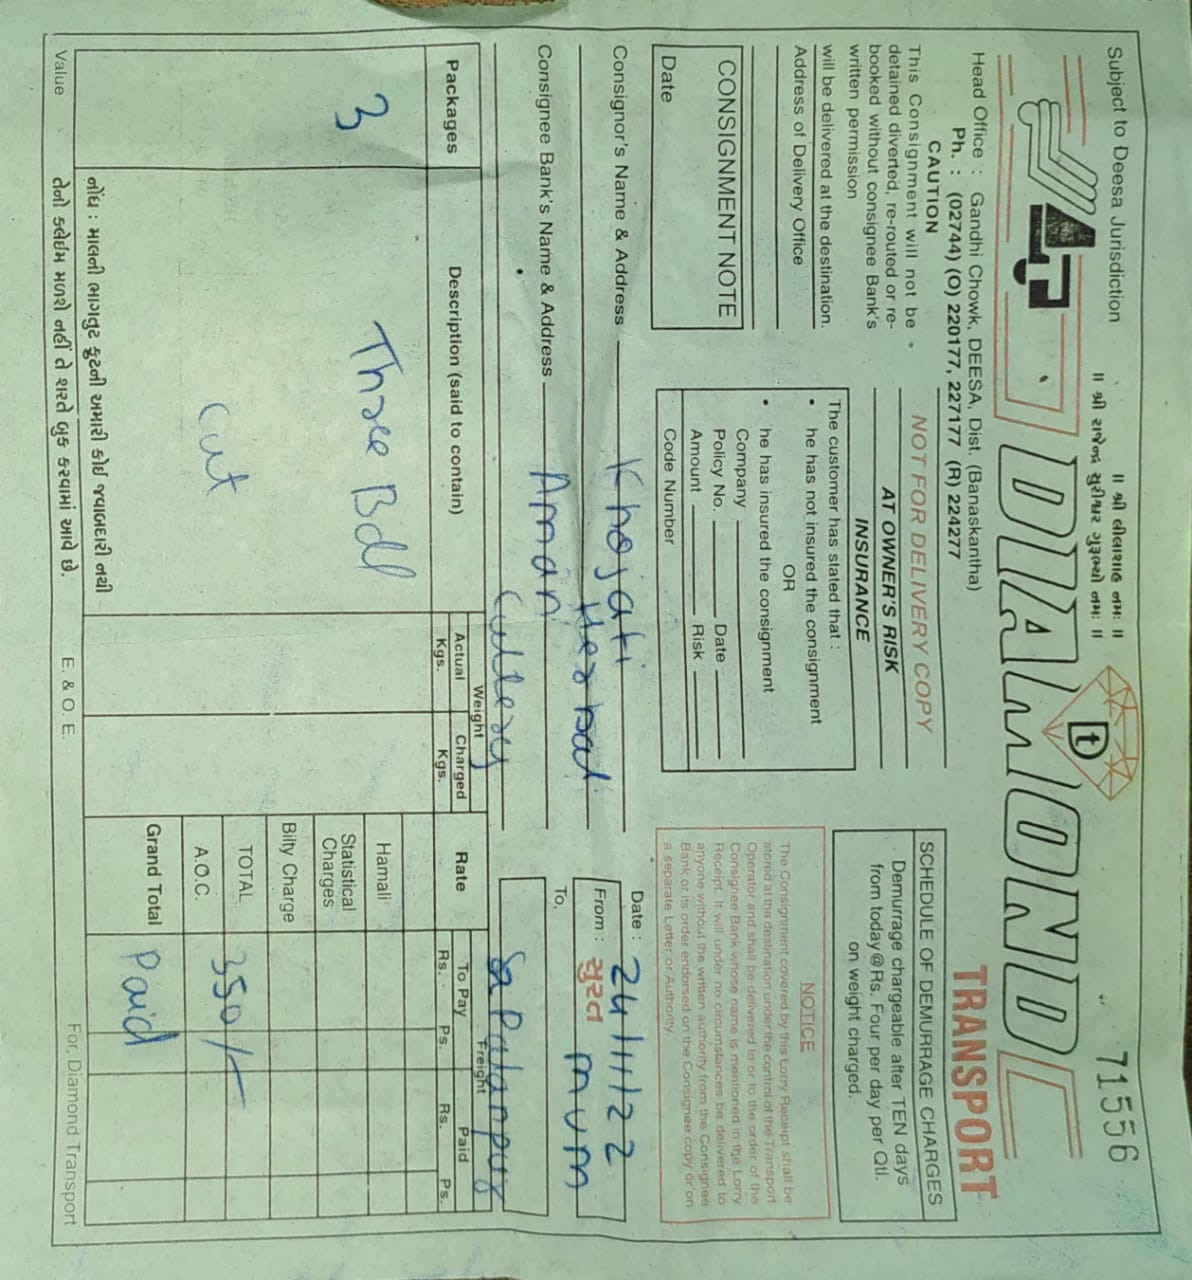 Subject to Deesa Jurisdiction
॥ શ્રી લીલાશાહ નમઃ ॥
॥ શ્રી રાજેન્દ્ર સુરીશ્વર ગુરૂભ્યો નમઃ ॥
71556
DIAMOND
Dt
TRANSPORT
Head Office : Gandhi Chowk, DEESA, Dist. (Banaskantha)
Ph. : (02744) (O) 220177, 227177 (R) 224277
CAUTION
This Consignment will not be
detained diverted, re-routed or re-
booked without consignee Bank's
written permission
will be delivered at the destination.
Address of Delivery Office
NOT FOR DELIVERY COPY
AT OWNER'S RISK
INSURANCE
The customer has stated that :
• he has not insured the consignment
OR
• he has insured the consignment
Company
Policy No. Date
Amount Risk
Code Number
SCHEDULE OF DEMURRAGE CHARGES
Demurrage chargeable after TEN days
from today@Rs. Four per day per Qtl.
on weight charged.
NOTICE
The Consignment covered by this Lorry Receipt shall be
stored at the destination under the control of the Transport
Operator and shall be delivered to or to the order of the
Consignee Bank whose name is mentioned in the Lorry
Receipt. It will under no circumstances be delivered to
anyone without the written authority from the Consignee
Bank or its order endorsed on the Consignee copy or on
a separate Letter or Authority.
CONSIGNMENT NOTE
Date
Consignor's Name & Address Khojati
Herbal
Consignee Bank's Name & Address Aman
Cutlery
Date : 24/11/22
From : સુરત mum
To,
Palanpur
Packages
Description (said to contain)
Weight
Actual Kgs.
Charged Kgs.
Rate
Freight
To Pay
Rs. Ps.
Paid
Rs. Ps.
3
Three Bdl
Cut
Hamali
Statistical Charges
Bilty Charge
TOTAL 350/-
A.O.C.
Grand Total Paid
નોંધ : માલની ભાગતુટ ફુટની અમારી કોઇ જવાબદારી નથી
Value તેનો કલેઇમ મળશે નહીં તે શરતે બુક કરવામાં આવે છે. E. & O. E. For, Diamond Transport